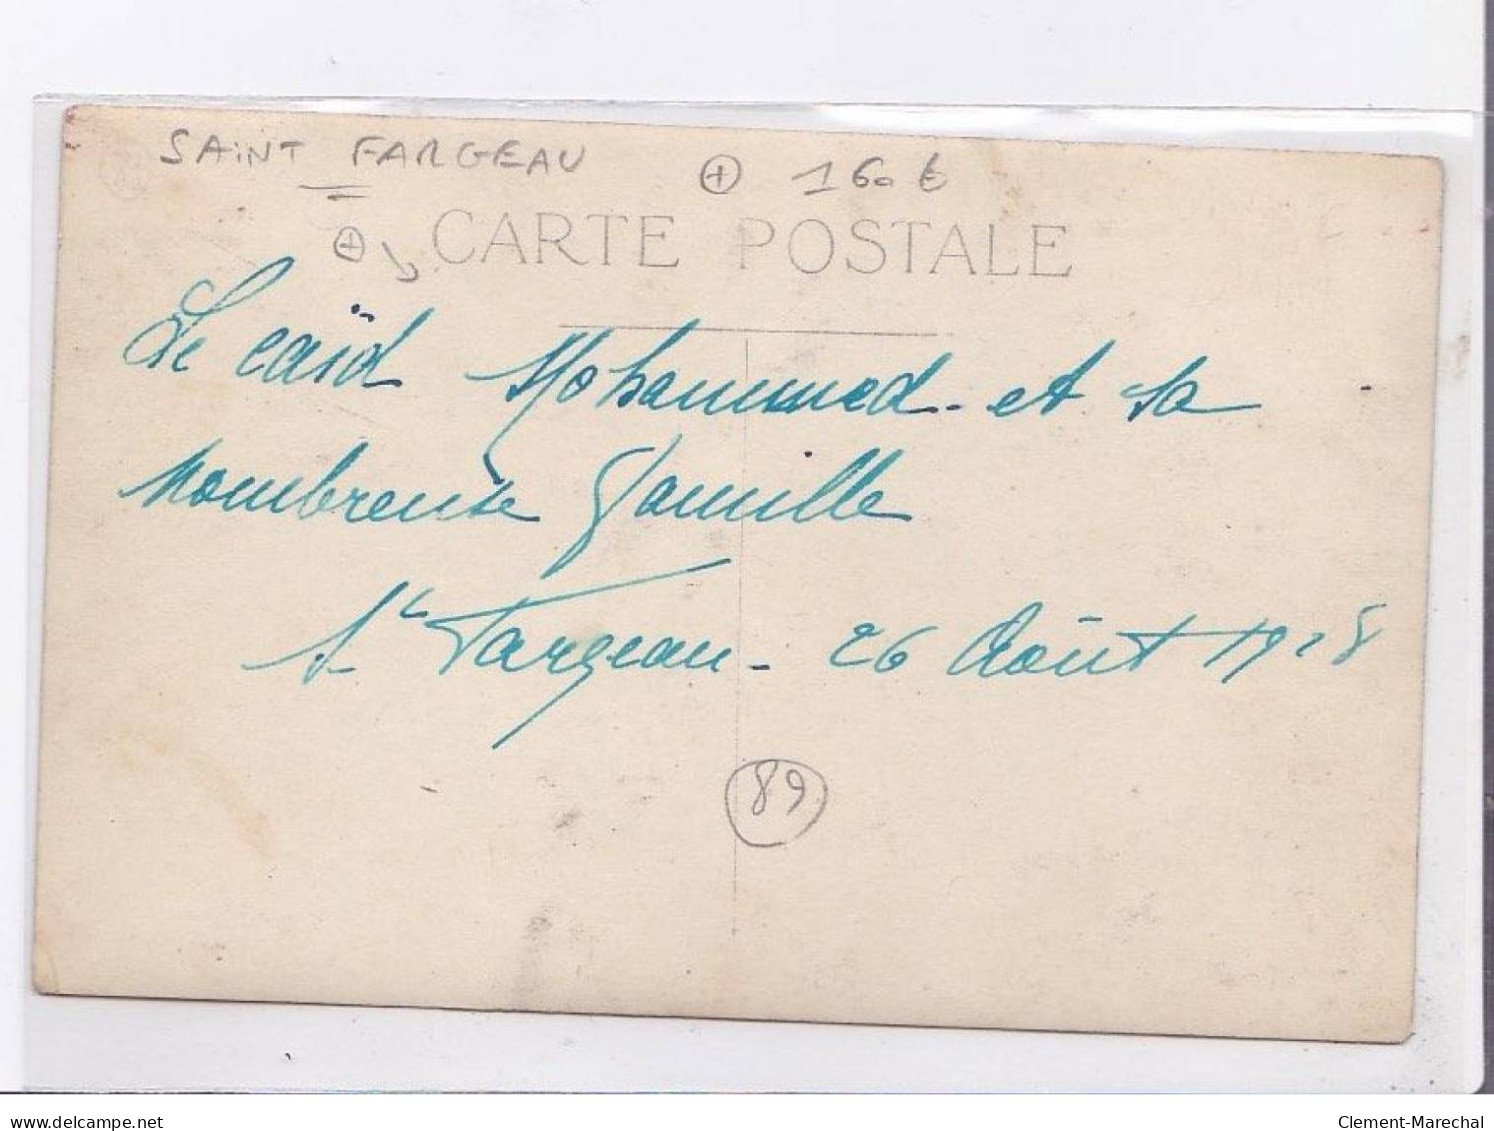 SAINT FARGEAU 160 €
CARTE POSTALE
Le caïd Mohammed - et sa
nombreuse famille
St Fargeau - 26 Août 1928
89
delcampe.net
Clement-Marechal